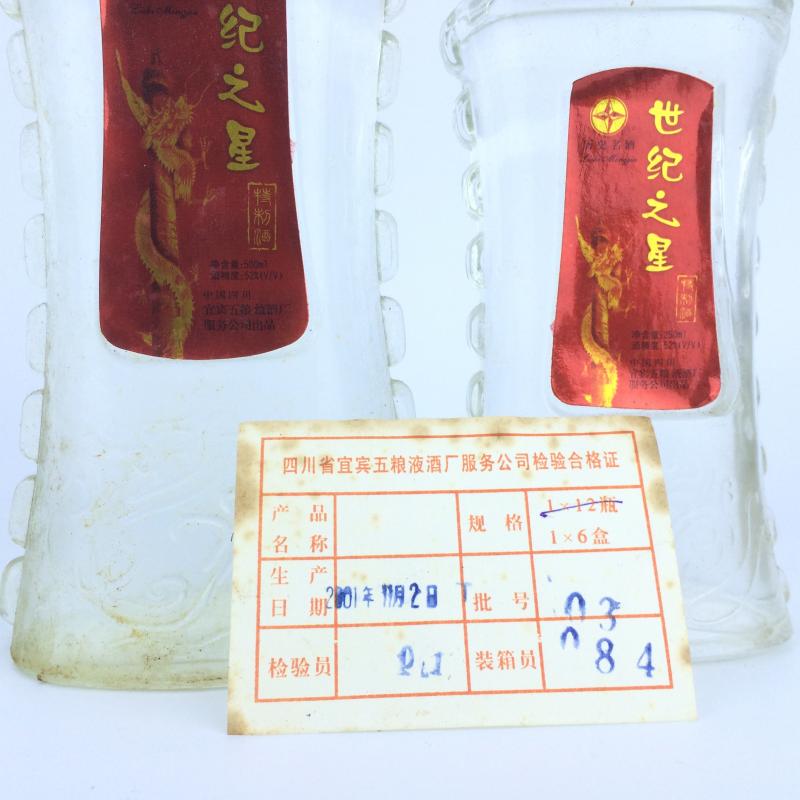 纪之星
特制酒
净含量:500ml
酒精度:52%(V/V)
中国四川
宜宾五粮液酒厂
服务公司出品
历史名酒
世纪之星
特制酒
净含量:250ml
酒精度:52%(V/V)
中国四川
宜宾五粮液酒厂
服务公司出品
四川省宜宾五粮液酒厂服务公司检验合格证
产品名称
规格
1×12瓶
1×6盒
生产日期
2001年11月2日
批号
03
检验员
装箱员
084